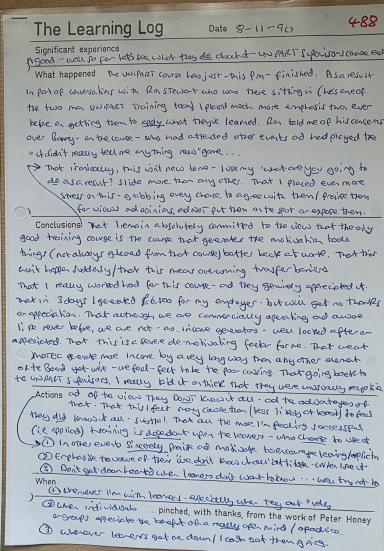 The Learning Log Date 8-11-90 488
Significant experience
A good - well so far let's see what they do about it - UNIPART Supervisors course
What happened The UNIPART course has just - this pm - finished. As a result
in part of counselling with Ron Stewart who was there sitting in (he's one of
the two man UNIPART Training team) I placed much more emphasis than ever
before on getting them to apply what they've learned. Ron told me of his concerns
over Barry - on the course - who had attended other events and had played the
"it didn't really tell me anything new" game...
That ironically, this isn't new to me - I use my 'what are you going to
do as a result' slide more than any others. That I placed even more
stress on this - grabbing every chance to agree with them / praise them
for views and opinions, and not put them on the spot or expose them.
Conclusions That I remain absolutely committed to the view that the only
good training course is the course that generates the motivation to do
things (not always gleaned from that course) better back at work. That this
won't happen suddenly / that this means overcoming transfer barriers
That I really worked hard for this course - and they genuinely appreciated it.
That in 3 days I generated £6,000 for my employer - but will get no thanks
or appreciation. That although we are commercially operating and aware
like never before, we are not - as income generators - well looked after or
appreciated. That this is a severe de-motivating factor for me. That we at
generate more income by a very long way than any other
yet we - we feel - felt to be the poor cousins. That going back to
the UNIPART Supervisors, I really
Actions of the view They Don't know it all - and the advantages of
that. That this I felt
they did know it all - That all the more I'm feeling successful
(ie applied) training is dependent upon the learners - who choose to use it
(1) In other events sincerely praise and motivate to encourage learning/application
(2) Emphasise the value of their 'we don't know it all' attitude - when I see it
(3) Don't get down hearted when learners don't want to know ... try not to
When
(1) Whenever I'm with learners - especially when they
(2) When individuals .... pinched, with thanks, from the work of Peter Honey
or groups appreciate the benefit of a really open mind /
(3) Whenever learners get me down / I can't get them going.